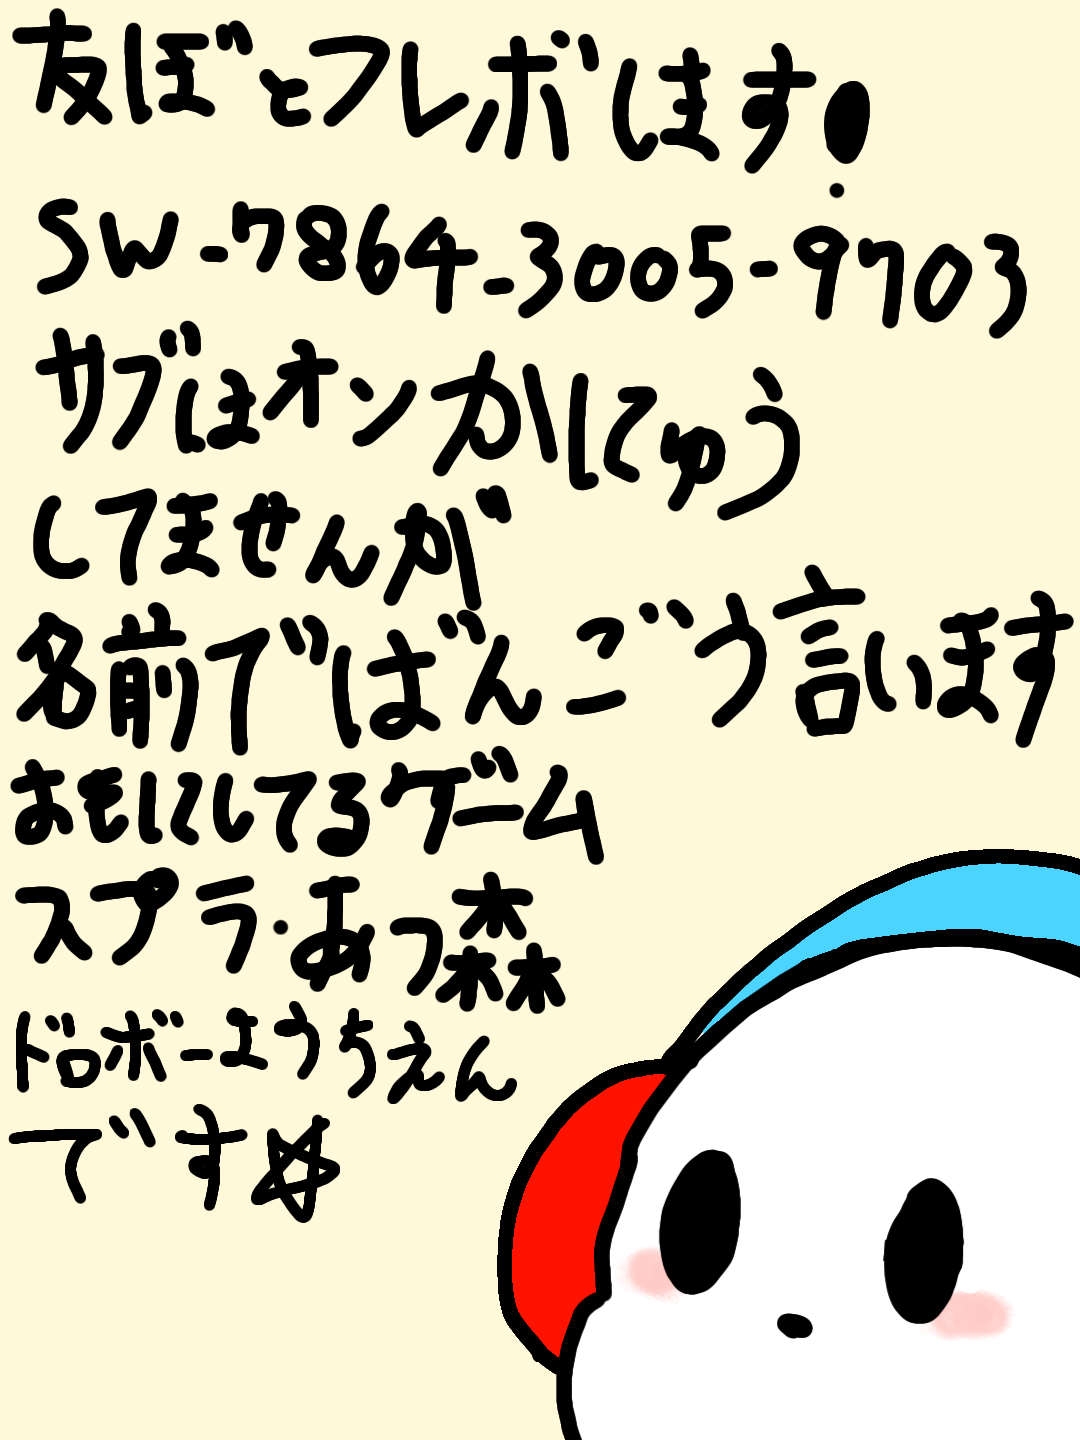 友ぼとフレボします!
SW-7864-3005-9703
サブはオンかにゅう
してませんが
名前でばんごう言います
おもにしてるゲーム
スプラ・あつ森
ドロボーようちえん
です☆